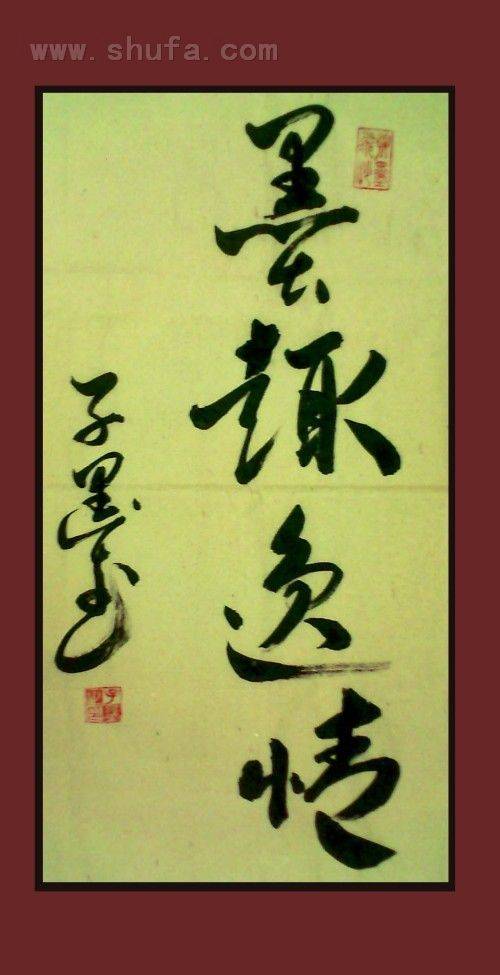 www.shufa.com
墨趣逸情
子墨书